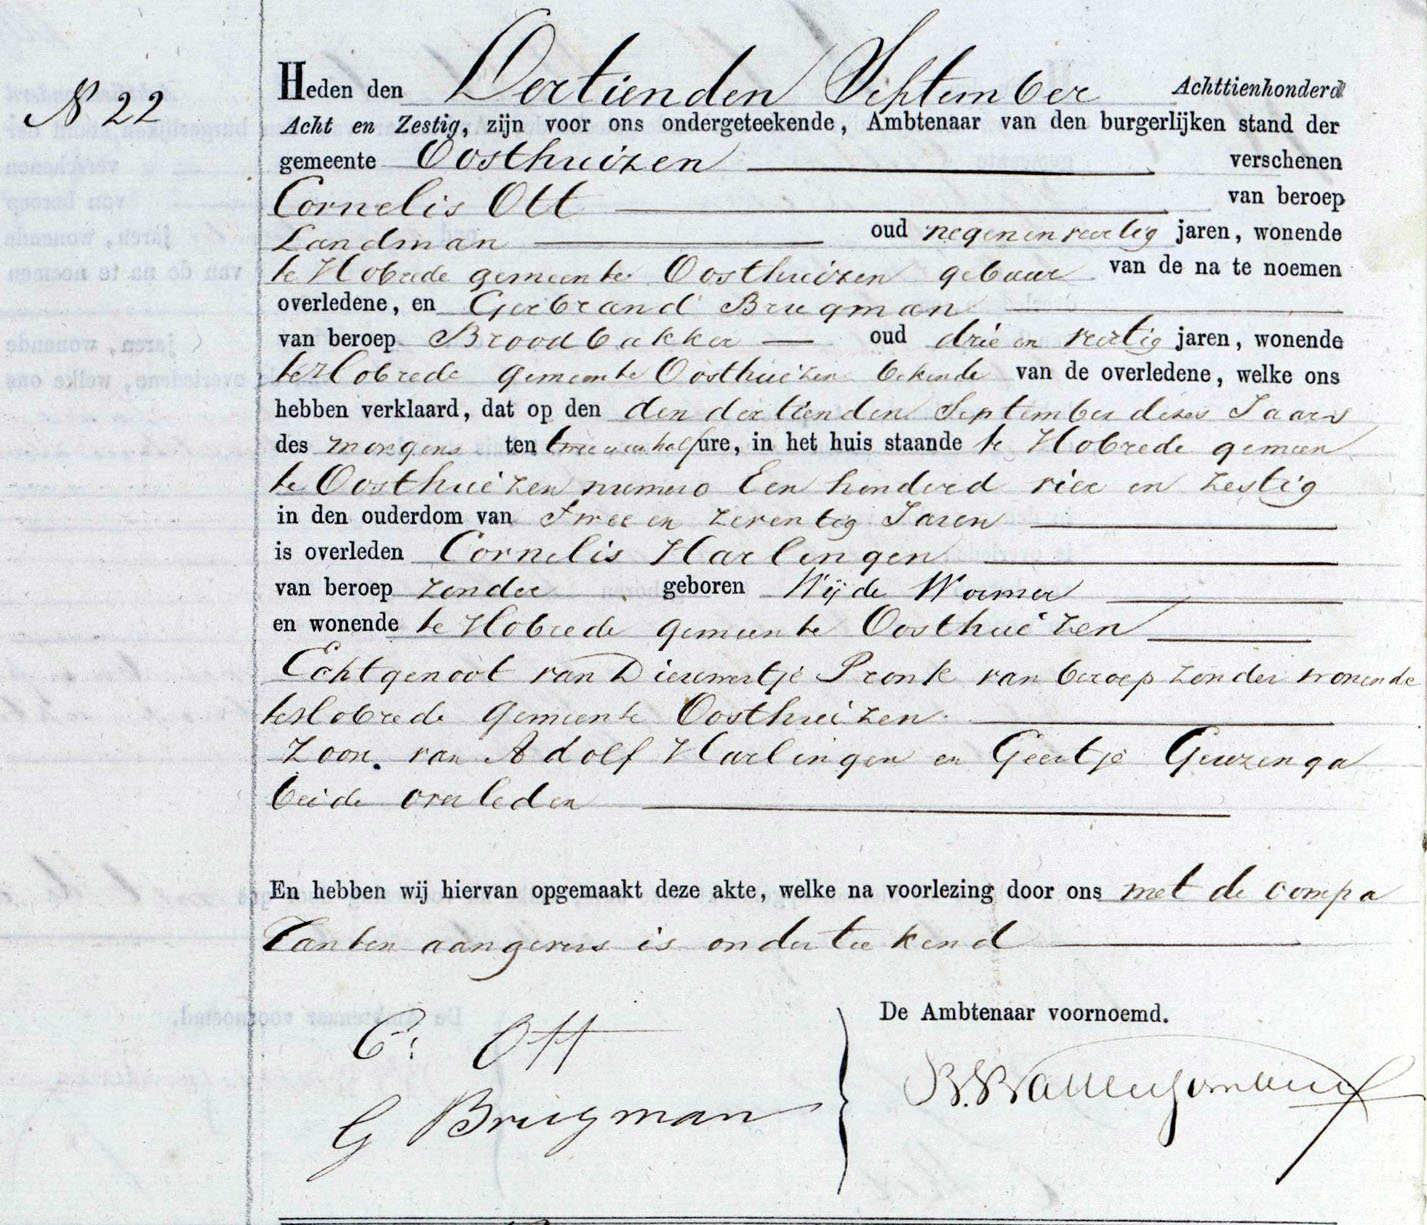 N 22
Heden den Dertienden September Achttienhonderd
Acht en Zestig, zijn voor ons ondergeteekende, Ambtenaar van den burgerlijken stand der
gemeente Oosthuizen verschenen
Cornelis Ott van beroep
Landman oud negen en veertig jaren, wonende
te Hobrede gemeente Oosthuizen gebuur van de na te noemen
overledene, en Gerbrand Brugman
van beroep Broodbakker oud drie en veertig jaren, wonende
te Hobrede gemeente Oosthuizen bekende van de overledene, welke ons
hebben verklaard, dat op den den dertienden September dezes Jaars
des morgens ten twee en een half ure, in het huis staande te Hobrede gemeen
te Oosthuizen numero Een honderd vier en zestig
in den ouderdom van Twee en zeventig Jaren
is overleden Cornelis Harlingen
van beroep zonder geboren Wijde Wormer
en wonende te Hobrede gemeente Oosthuizen
Echtgenoot van Dieuwertje Pronk van beroep zonder wonende
te Hobrede gemeente Oosthuizen
zoon van Adolf Harlingen en Geertje Geuzenga
beide overleden
En hebben wij hiervan opgemaakt deze akte, welke na voorlezing door ons met de compa
ranten aangevers is onderteekend
De Ambtenaar voornoemd.
C: Ott
G Brugman